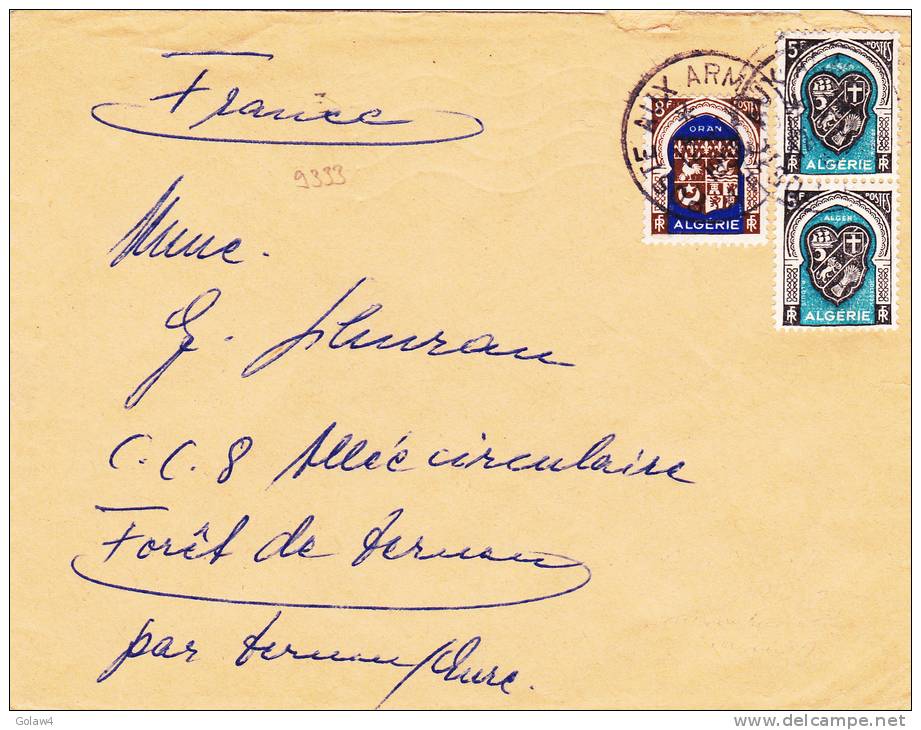 France
9333
POSTE AUX ARM
8F POSTES
ORAN
RF ALGÉRIE RF
5F POSTES
ALGER
RF ALGÉRIE RF
5F POSTES
ALGER
RF ALGÉRIE RF
Mme.
G.
C.C. 8 Allée circulaire
Forêt de Vernon
par Vernon/Eure.
Golaw4
www.delcampe.net